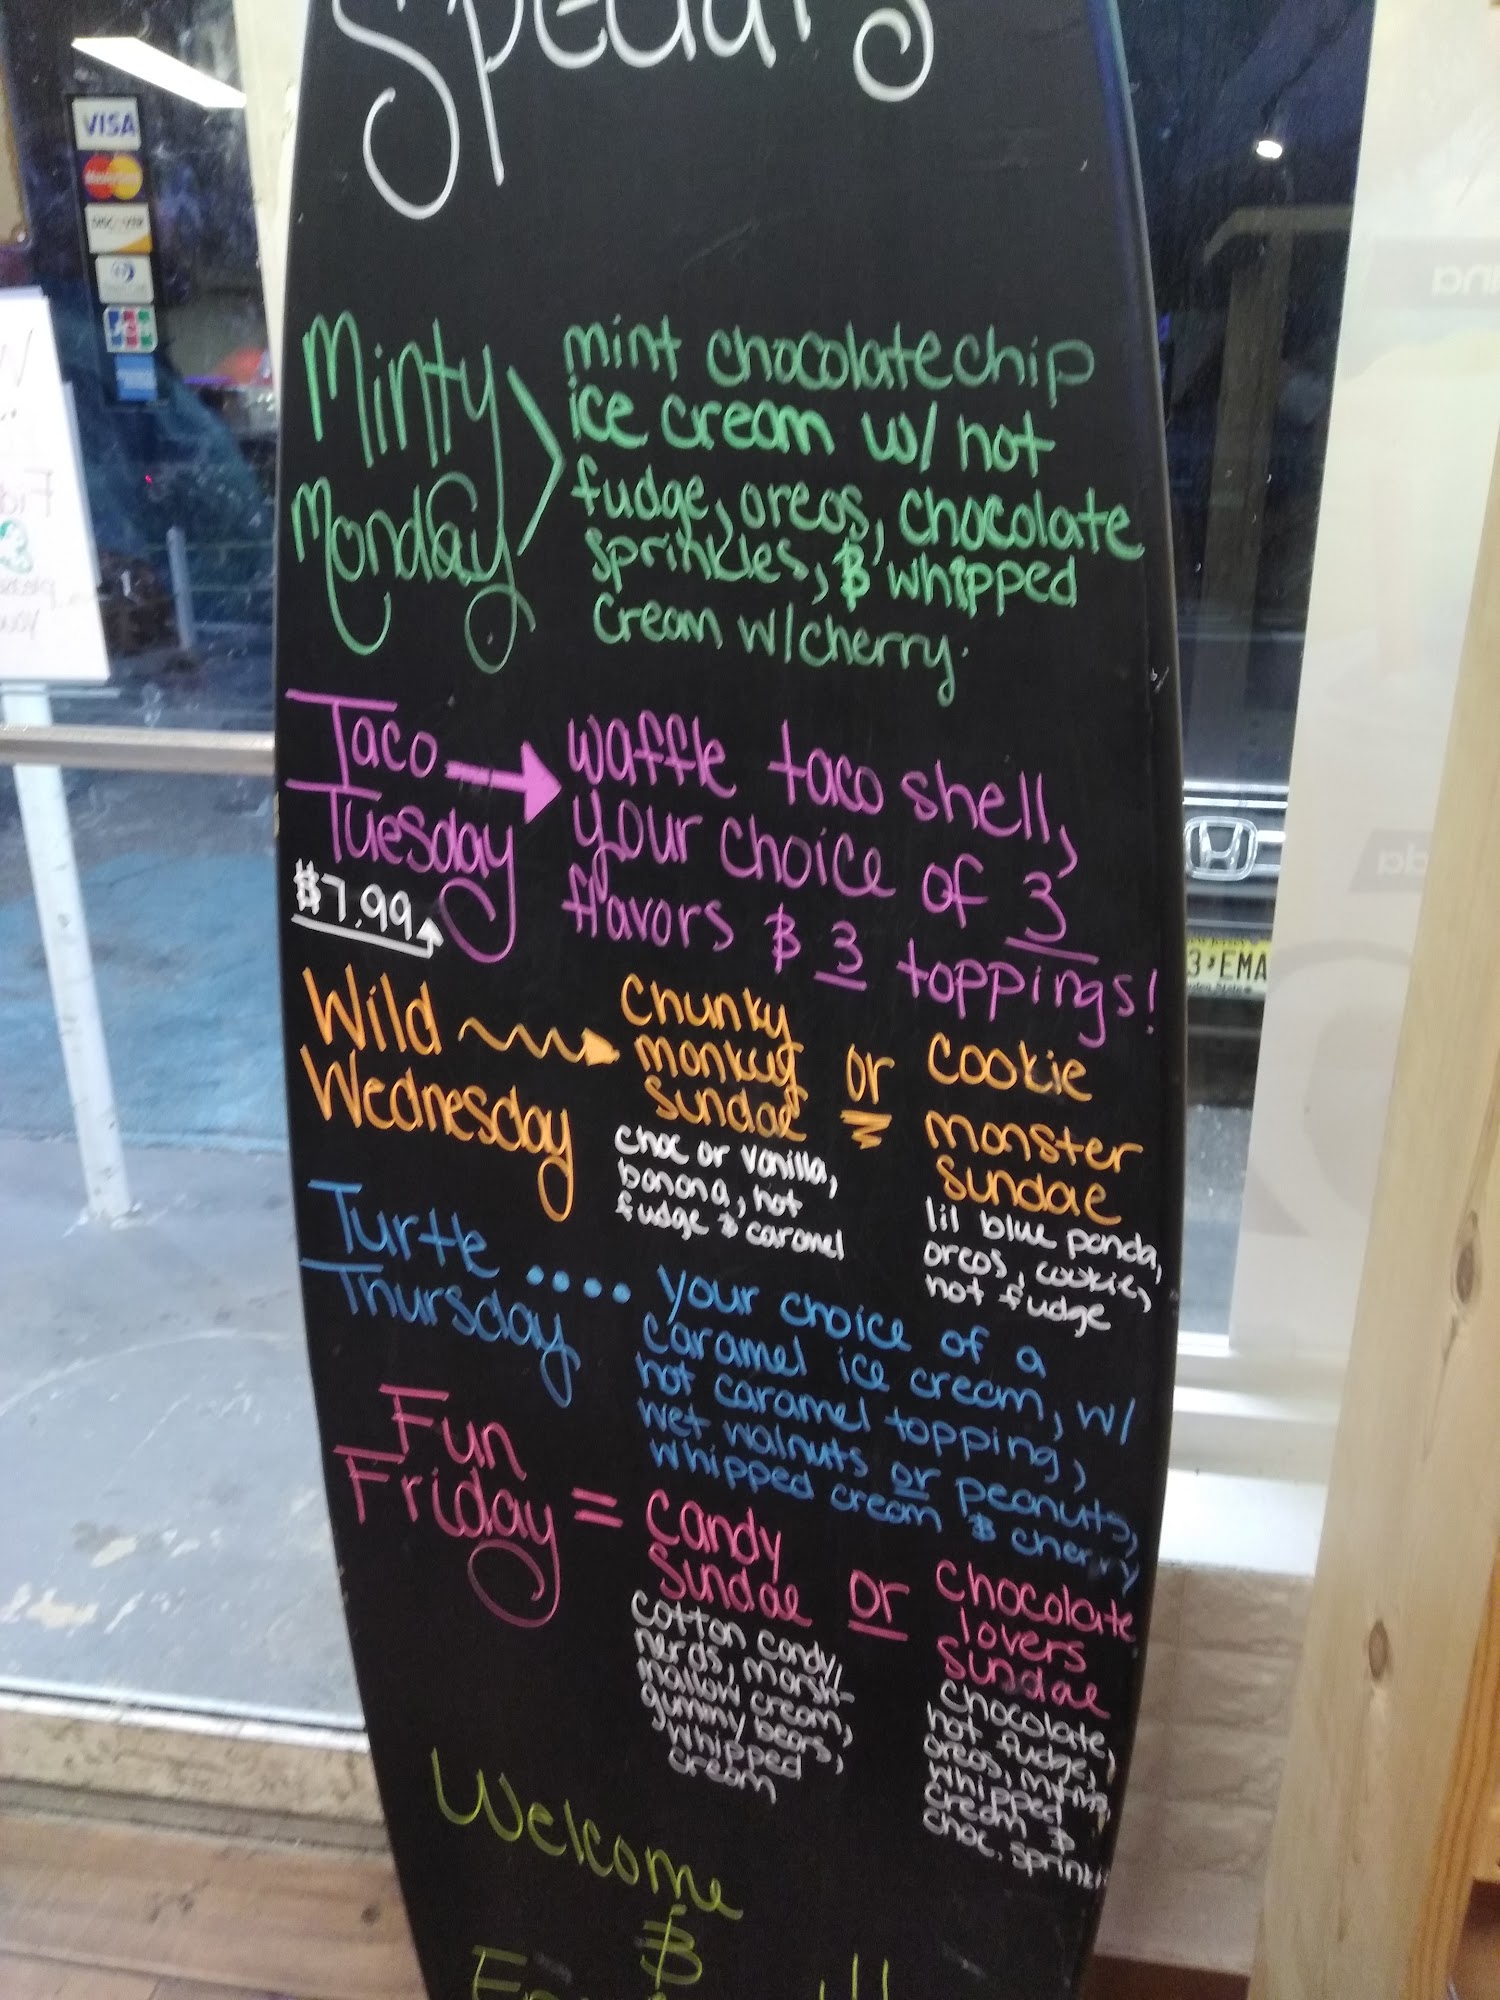 Specials
Minty
Monday
mint chocolate chip
ice cream w/ hot
fudge, oreos, chocolate
sprinkles, & whipped
cream w/cherry.
Taco
Tuesday
$7.99
waffle taco shell,
your choice of 3
flavors & 3 toppings!
Wild
Wednesday
Chunky
monkey
sundae
choc or vanilla,
banana, hot
fudge & caramel
or
cookie
monster
sundae
lil blue panda,
oreos, cookie,
hot fudge
Turtle
Thursday
your choice of a
caramel ice cream, w/
hot caramel topping,
wet walnuts or peanuts,
whipped cream & cherry
Fun
Friday =
candy
sundae
cotton candy,
nerds, marsh-
mallow cream,
gummy bears,
whipped
cream
or
chocolate
lovers
sundae
chocolate,
hot fudge,
oreos, m+ms,
whipped
cream &
choc. sprinkl
Welcome
&
VISA
MasterCard
DISCOVER
JCB
3 EMA